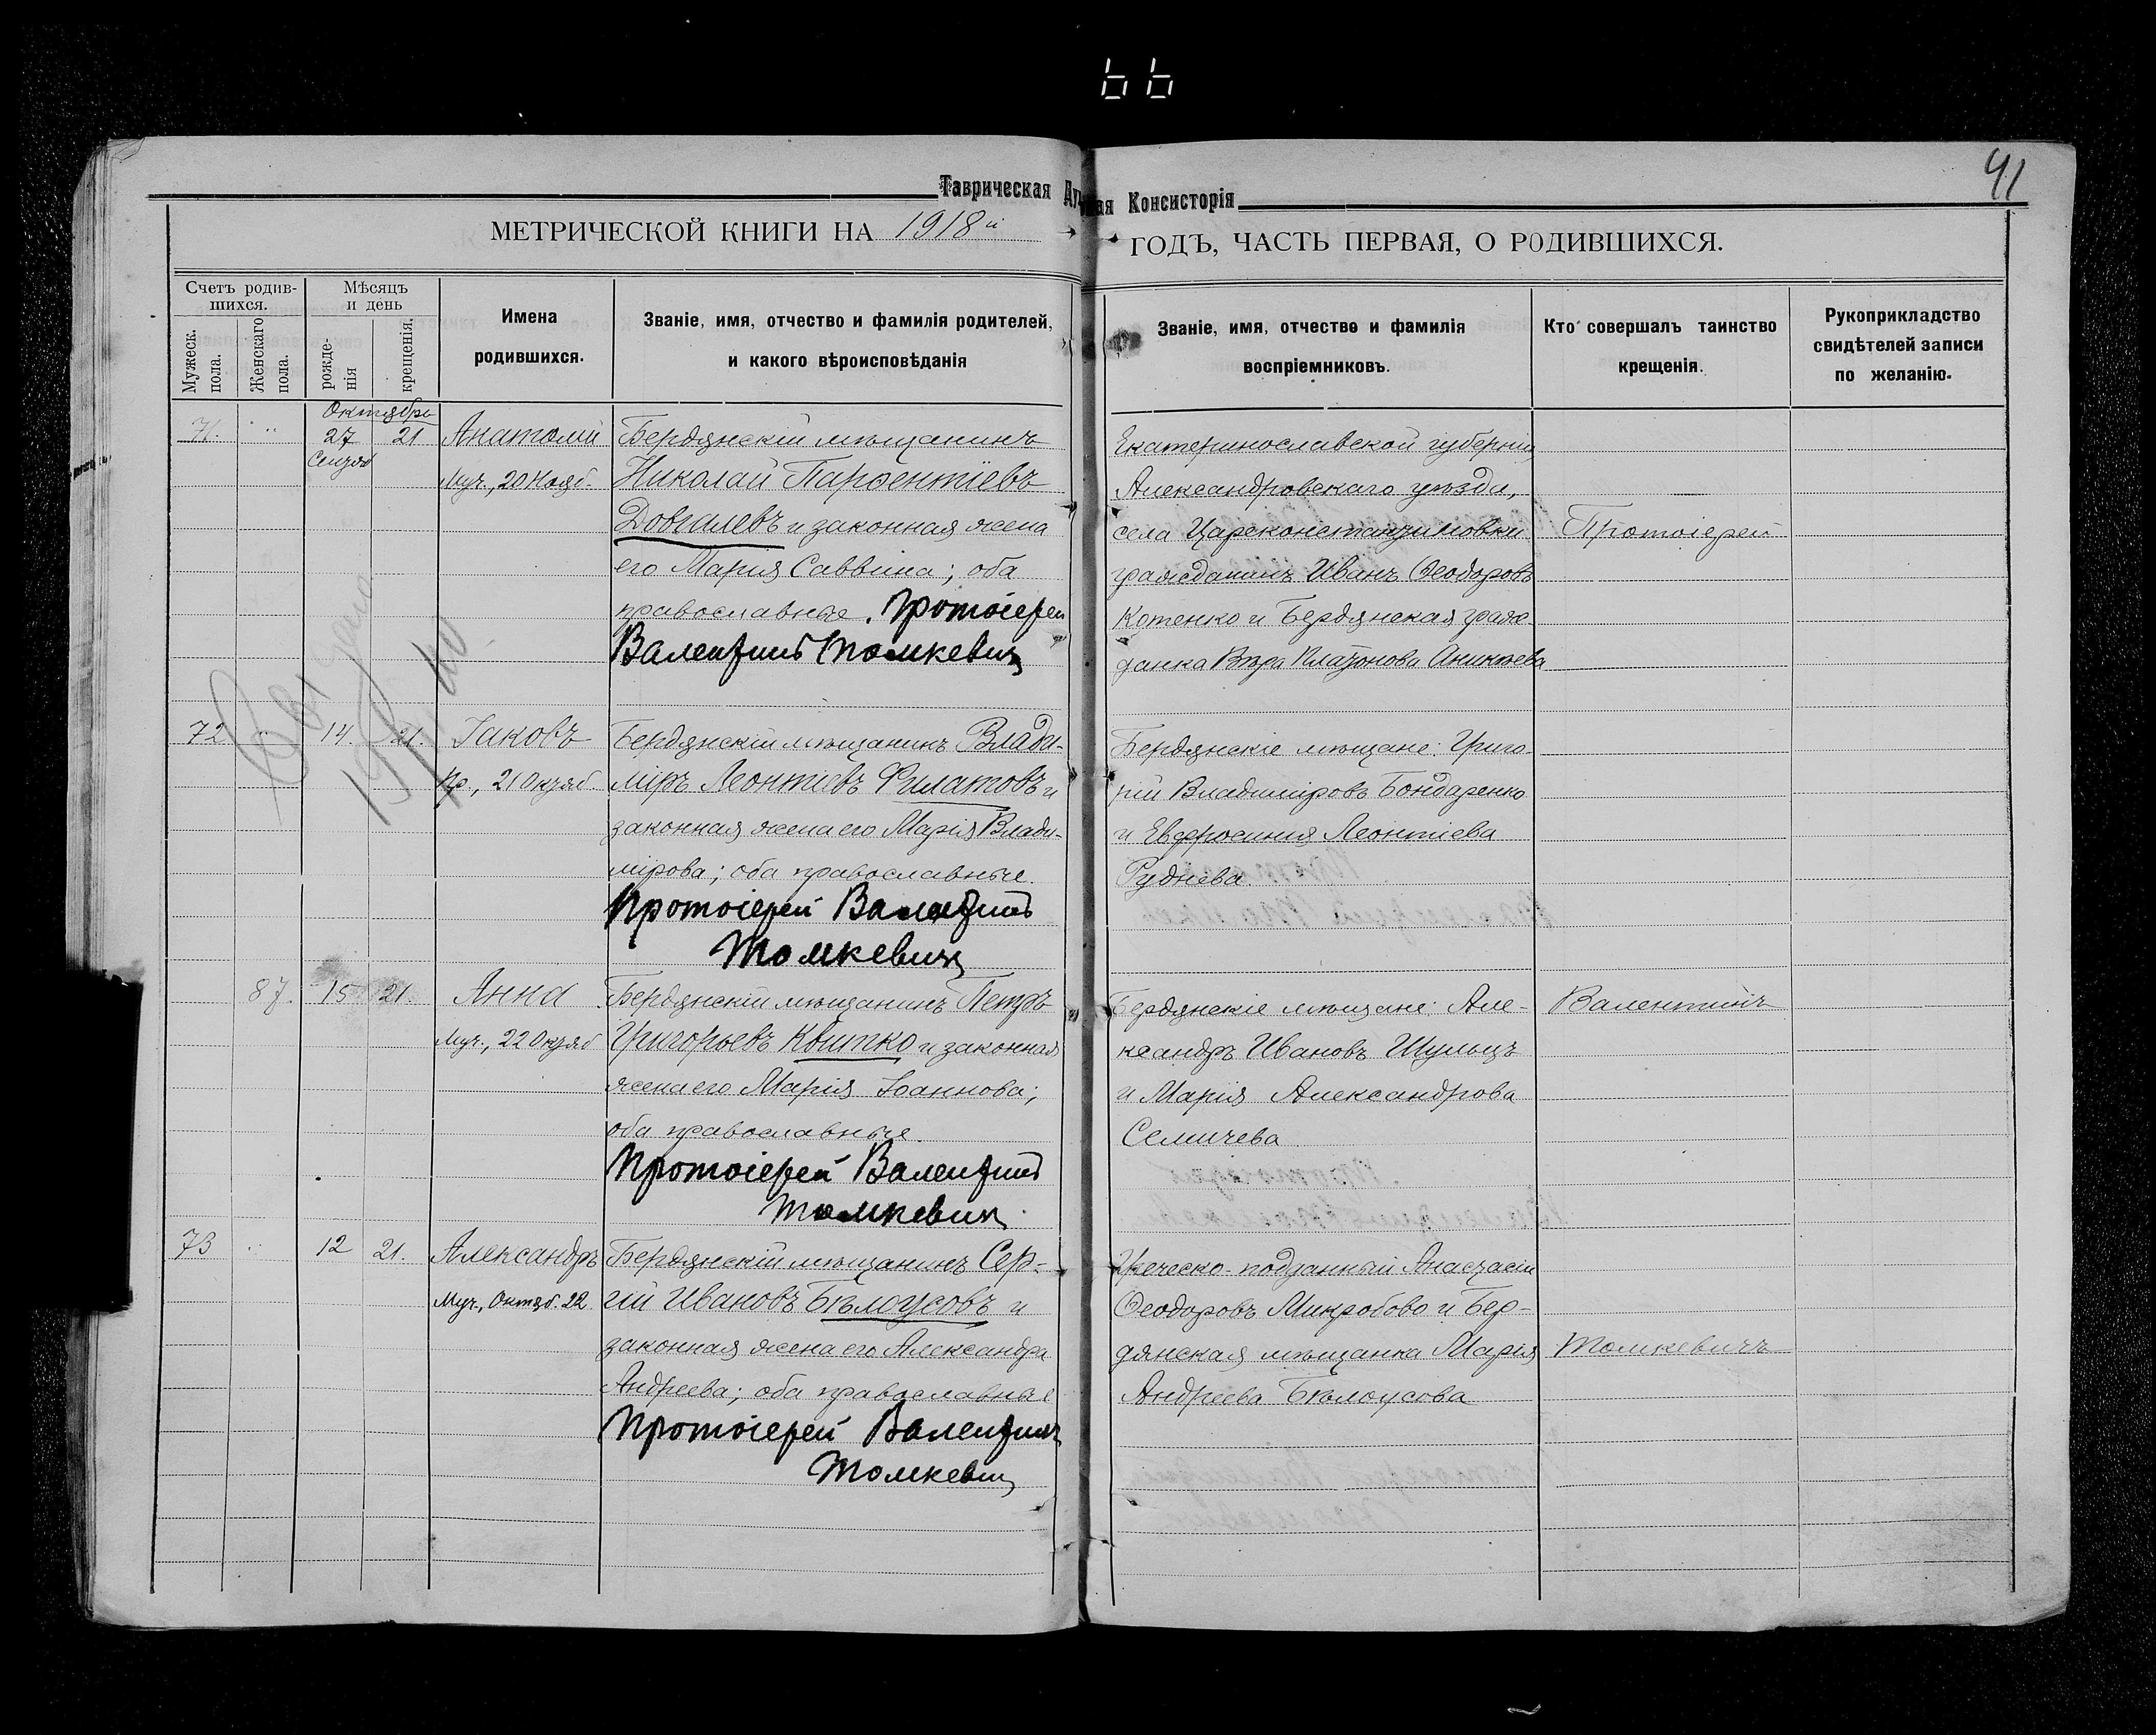 66
41
Таврическая Ду
ная Консисторія
МЕТРИЧЕСКОЙ КНИГИ НА 1918й
ГОДЪ, ЧАСТЬ ПЕРВАЯ, О РОДИВШИХСЯ.
Счетъ родив-
шихся.
Мужеск.
пола.
Женскаго
пола.
Мѣсяцъ
и день
рожде-
нія
крещенія.
Имена
родившихся.
Званіе, имя, отчество и фамилія родителей,
и какого вѣроисповѣданія
Званіе, имя, отчество и фамилія
воспріемниковъ.
Кто совершалъ таинство
крещенія.
Рукоприкладство
свидѣтелей записи
по желанію.
Октябрь
71. 27 21 Анатолій Бердянскій мѣщанинъ
Муч., 20 Нояб. Николай Парѳентіевъ
Довгалевъ и законная жена
его Марія Саввина; оба
православные. Протоіерей
Валентинъ Томкевич
Екатеринославской губерніи,
Александровскаго уѣзда,
села Царсконстантиновки
гражданинъ Иванъ Ѳеодоровъ
Котенко и Бердянская граж-
данка Вѣра Платонова Аникѣева
Протоіерей
72 14. 21. Іаковъ Бердянскій мѣщанинъ Влади-
Пр., 21 Октяб. міръ Леонтіевъ Филатовъ и
законная жена его Марія Влади-
мірова; оба православные.
Протоіерей Валентинъ
Томкевич
Бердянскіе мѣщане: Григо-
рій Владиміровъ Бондаренко
и Евфросинія Леонтіева
Руднева.
87. 15 21. Анна Бердянскій мѣщанинъ Петръ
Муч., 22 Октяб Григорьевъ Квитко и законная
жена его Марія Іоаннова;
оба православные.
Протоіерей Валентинъ
Томкевич
Бердянскіе мѣщане: Але-
ксандръ Ивановъ Шульцъ
и Марія Александрова
Семичева
Валентинъ
73 12 21. Александръ Бердянскій мѣщанинъ Сер-
Муч., Октяб. 22 гій Ивановъ Бѣлоусовъ и
законная жена его Александра
Андреева; оба православные
Протоіерей Валентинъ
Томкевич
Греческо-подданный Анастасій
Ѳеодоровъ Микробово и Бер-
дянская мѣщанка Марія
Андреева Бѣлоусова
Томкевичъ